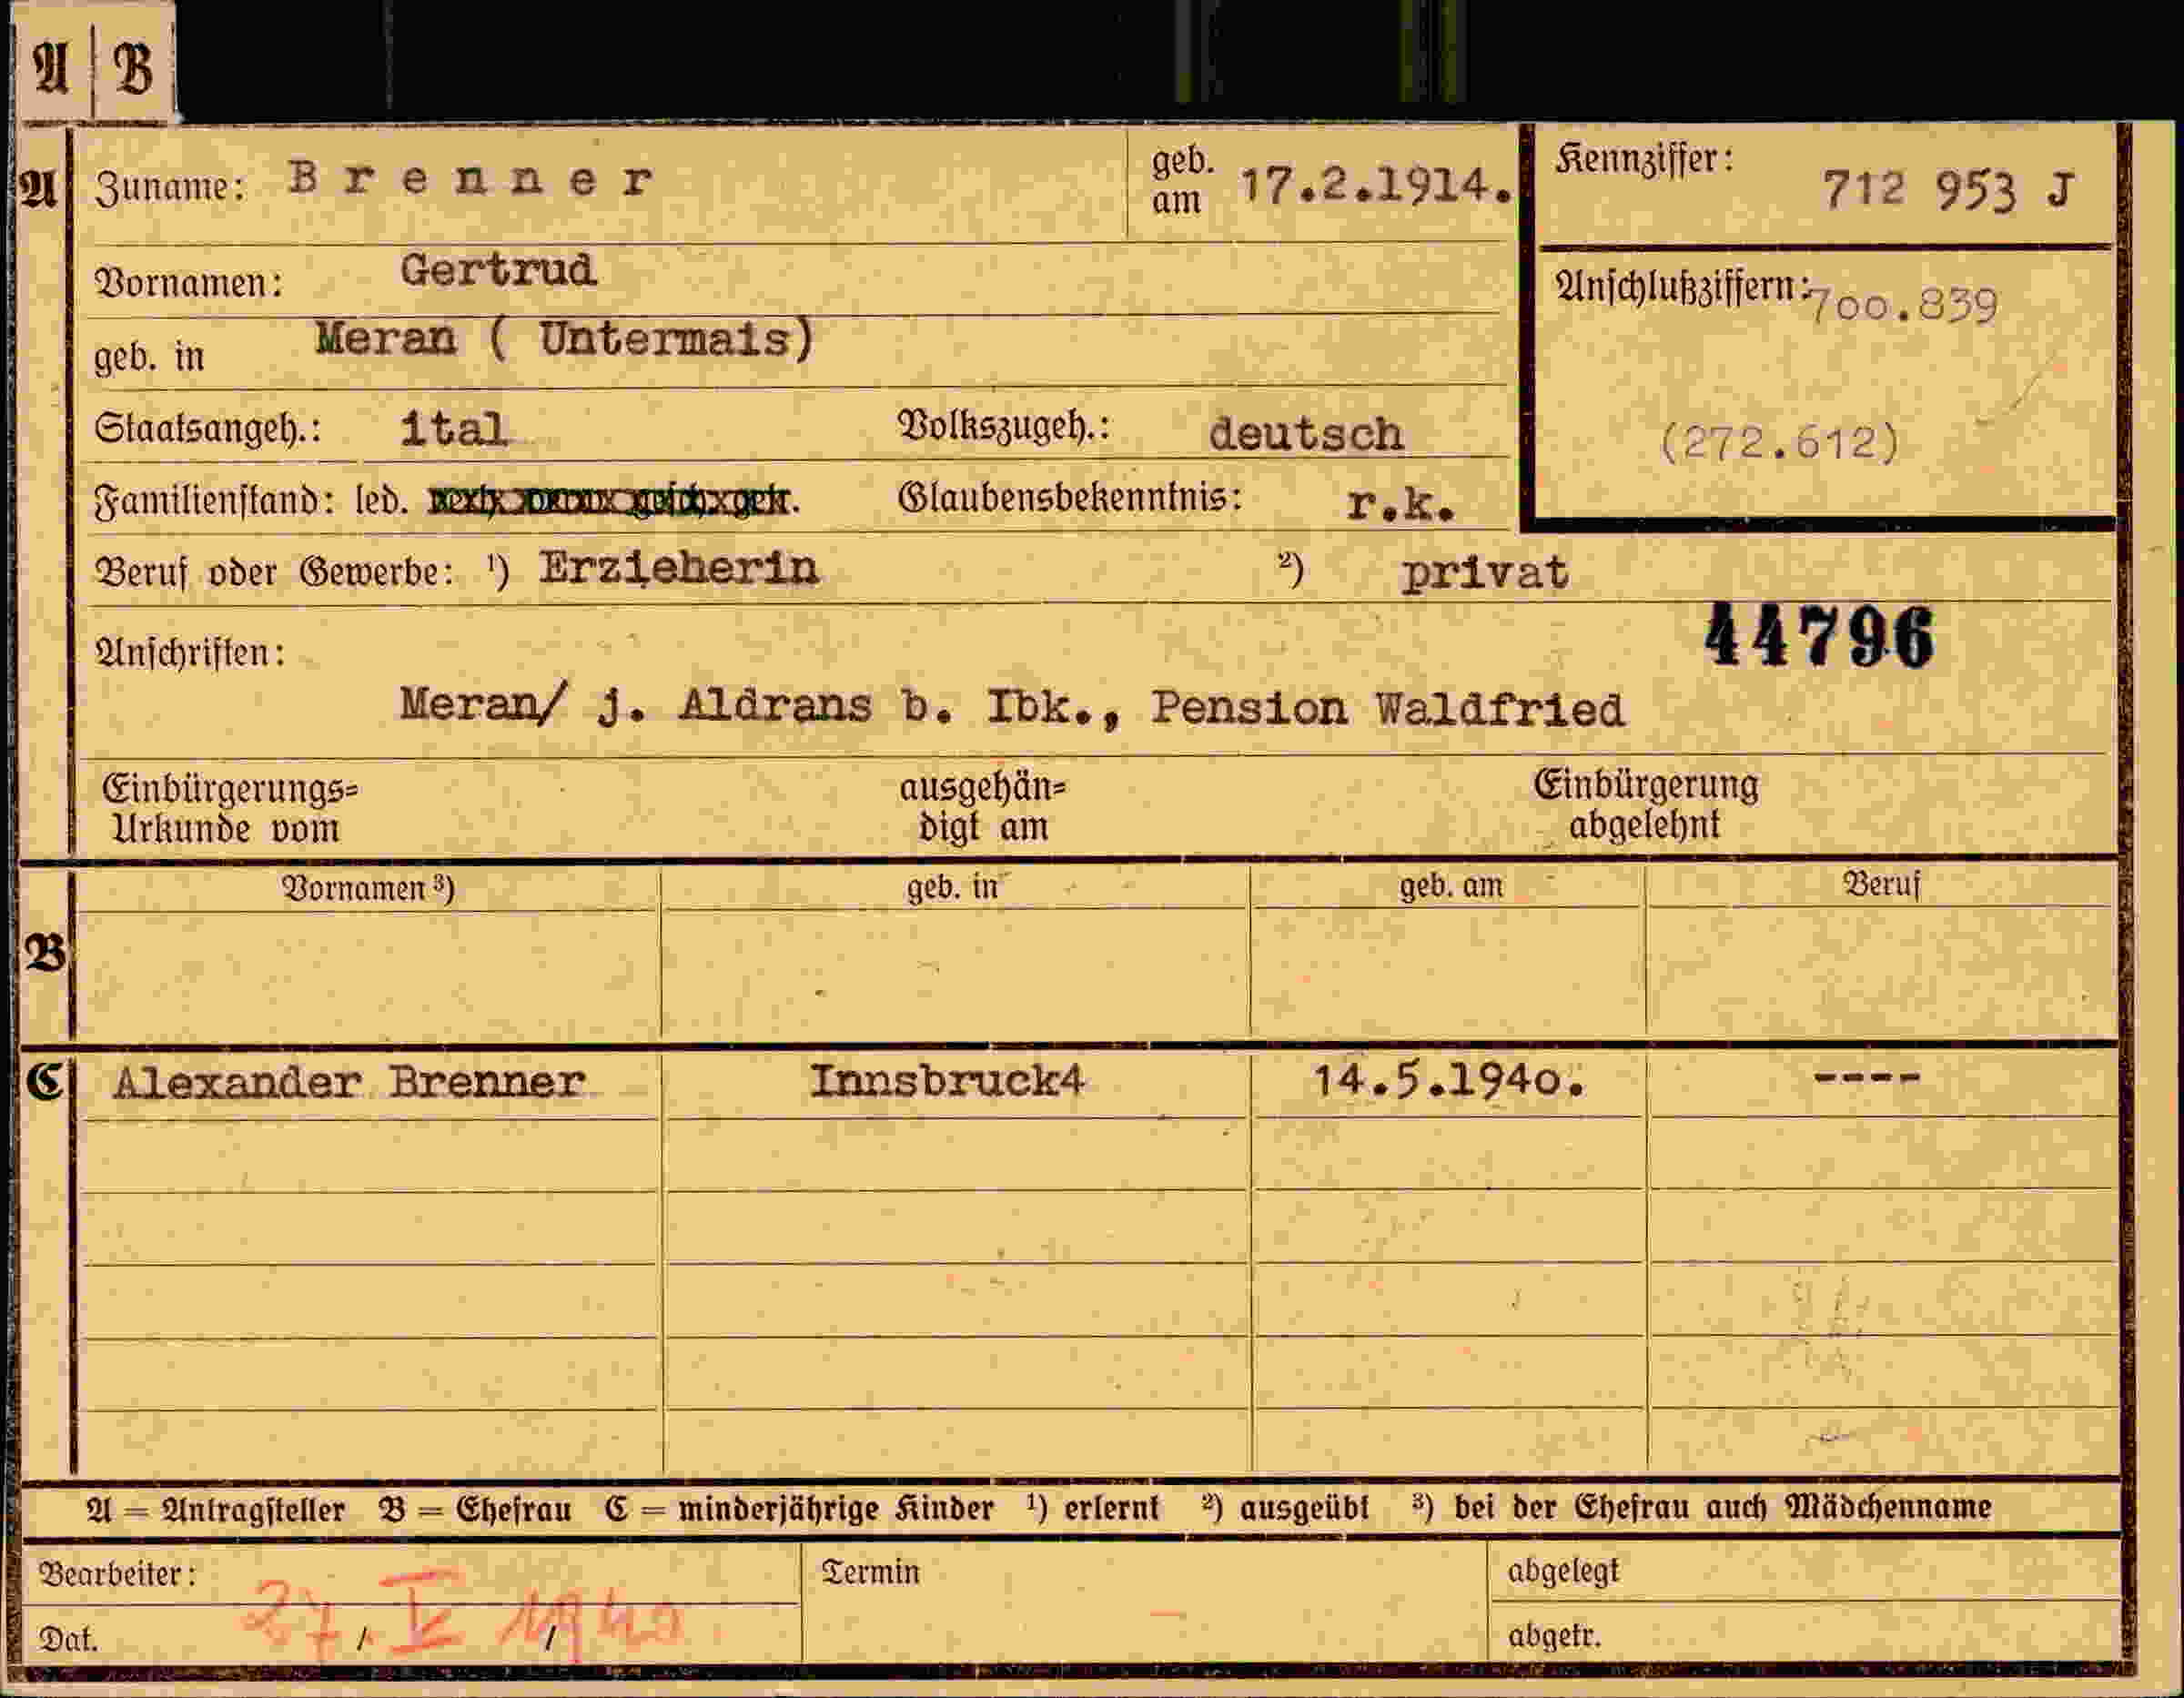 A | B
A Zuname: Brenner geb. am 17.2.1914. Kennziffer: 712 953 J
Vornamen: Gertrud Anschlußziffern: 700.839
geb. in Meran ( Untermais)
Staatsangeh.: ital Volkszugeh.: deutsch (272.612)
Familienstand: led. Glaubensbekenntnis: r.k.
Beruf oder Gewerbe: ¹) Erzieherin ²) privat
44796
Anschriften:
Meran/ j. Aldrans b. Ibk., Pension Waldfried
Einbürgerungs= ausgehän= Einbürgerung
Urkunde vom digt am abgelehnt
Vornamen ³) geb. in geb. am Beruf
B
C Alexander Brenner Innsbruck4 14.5.1940. ----
A = Antragsteller B = Ehefrau C = minderjährige Kinder ¹) erlernt ²) ausgeübt ³) bei der Ehefrau auch Mädchenname
Bearbeiter: Termin abgelegt
27. V 1940
Dat. / / abgetr.